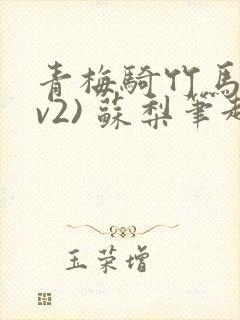 青梅騎竹馬
v2) 蘇梨筆趣
玉荣增